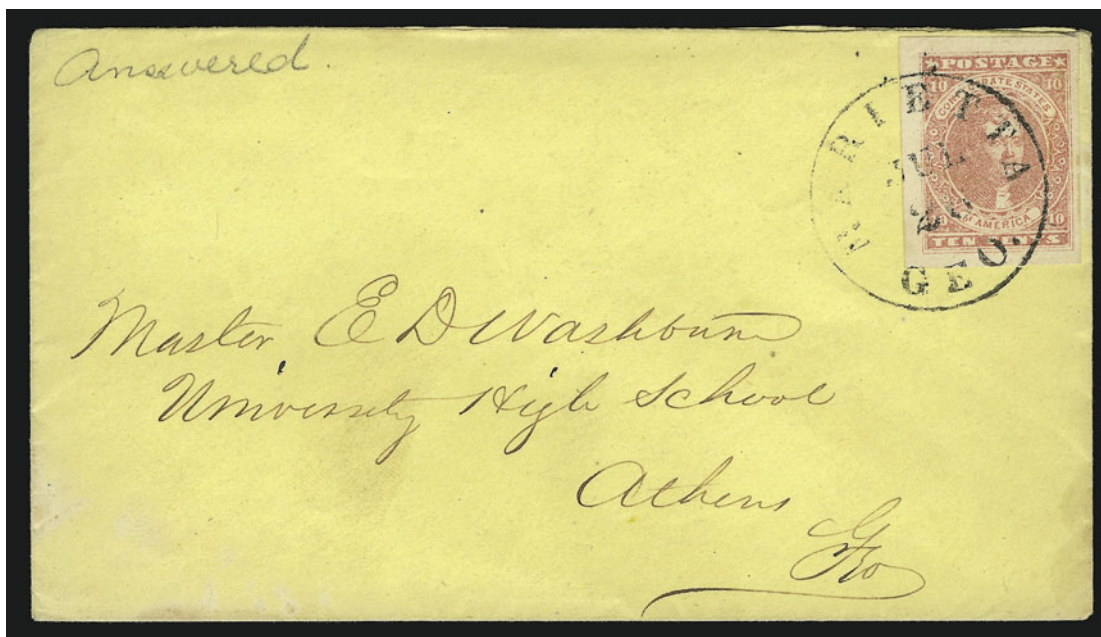 Answered.
POSTAGE
10 10
CONFEDERATE STATES
OF AMERICA
10 10
TEN CENTS
MARIETTA
JUL
GEO.
Master E D Washburn
University High School
Athens
Geo